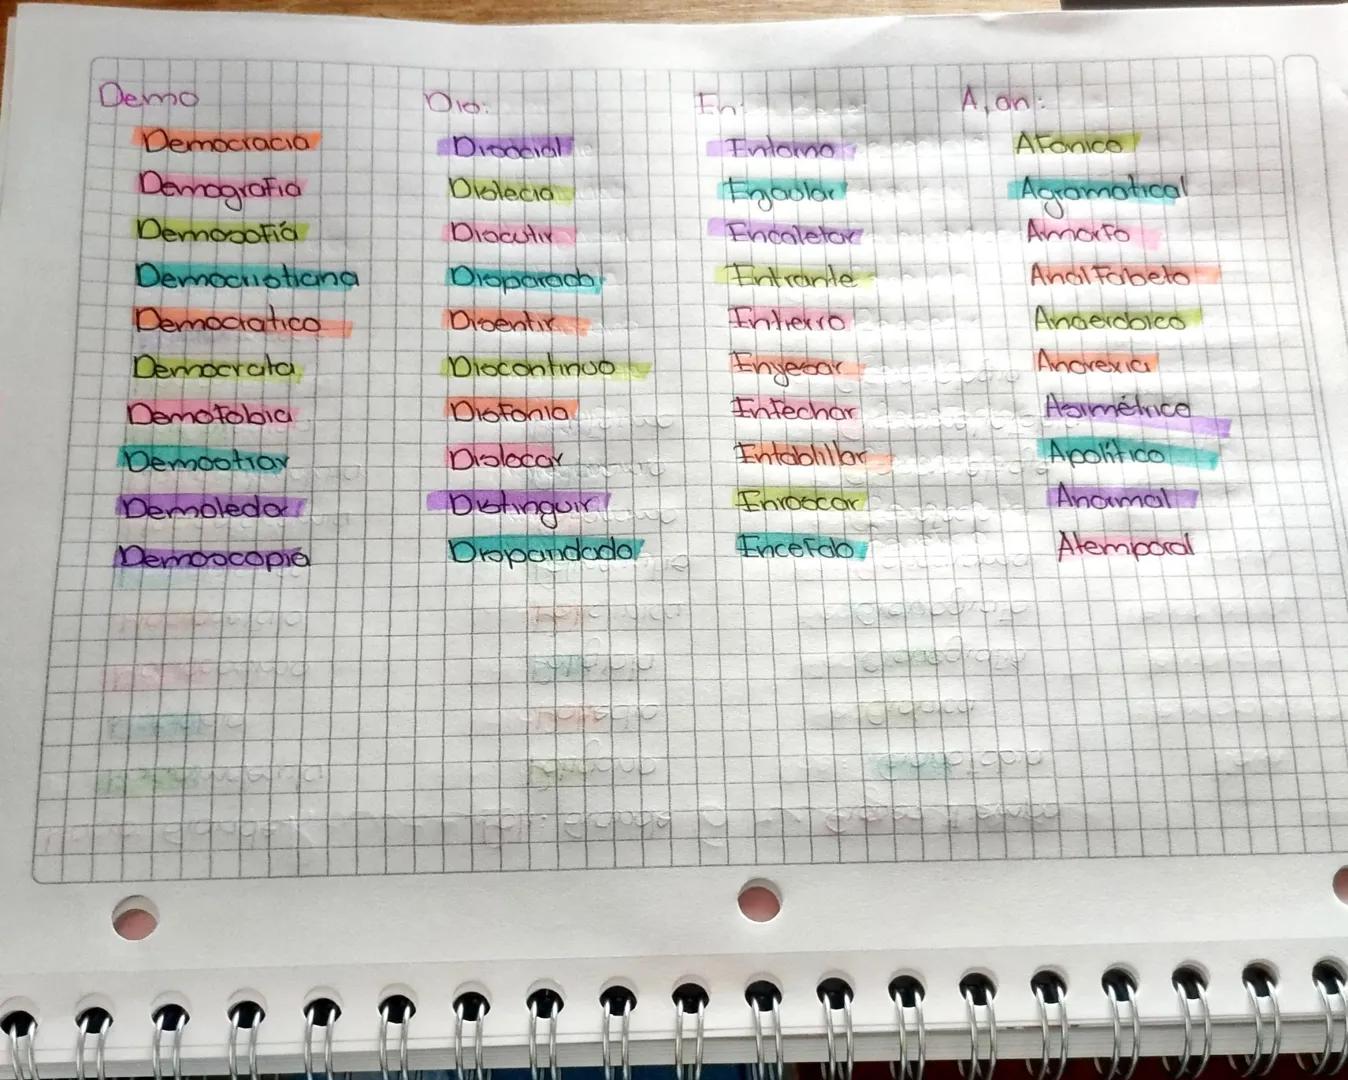 Demo
Democracia
Demografia
Demosofía
Democristiana
Democratico
Democrata
Demofobia
Demostrar
Demoledor
Demoscopia
Dis:
Disocial
Dislecia
Discutir
Disparado
Disentir
Discontinuo
Disfonia
Dislocar
Distinguir
Dispandado
En:
Entorno
Enjaular
Encaletar
Entrante
Entierro
Enyesar
Enfechar
Entablillar
Enroscar
Encefalo
A, an:
Afonico
Agramatical
Amorfo
Analfabeto
Anaerobico
Anorexia
Asimétrico
Apolítico
Anormal
Atemporal